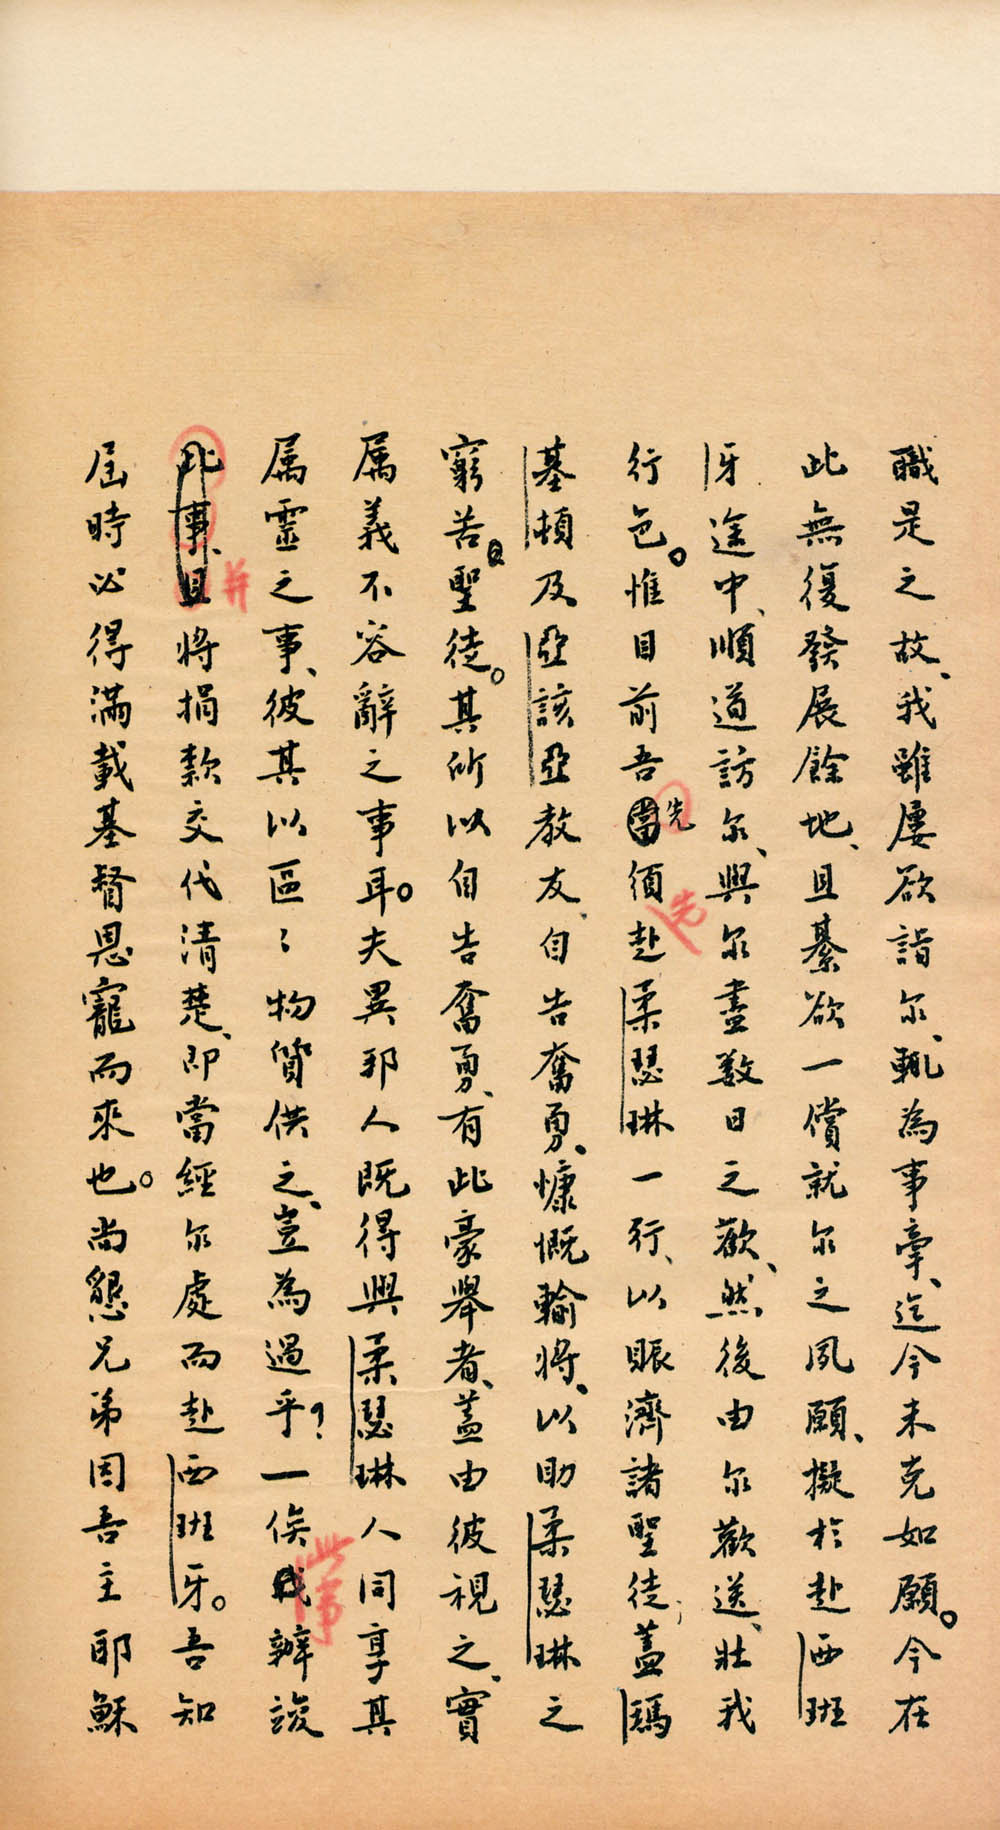 職是之故、我雖屢欲詣尔、輒為事牽、迄今未克如願。今在
此無復發展餘地、且綦欲一償就尔之夙願、擬於赴西班
牙途中、順道訪尔、與尔盡数日之歡、然後由尔歡送、壯我
行色。惟目前吾先須赴柔瑟琳一行、以賑濟諸聖徒；蓋瑪
先
基頓及亞該亞教友、自告奮勇、慷慨輸將、以助柔瑟琳之
窮苦聖徒。其所以自告奮勇、有此豪舉者、蓋由彼視之、實
屬義不容辭之事耳。夫異邦人既得與柔瑟琳人同享其
屬靈之事、彼其以區〻物質供之、豈為過乎？一俟我辦竣
此事
此事、且將捐款交代清楚、即當經尔處而赴西班牙。吾知
并
屆時必得滿載基督恩寵而來也。尚懇兄弟因吾主耶穌